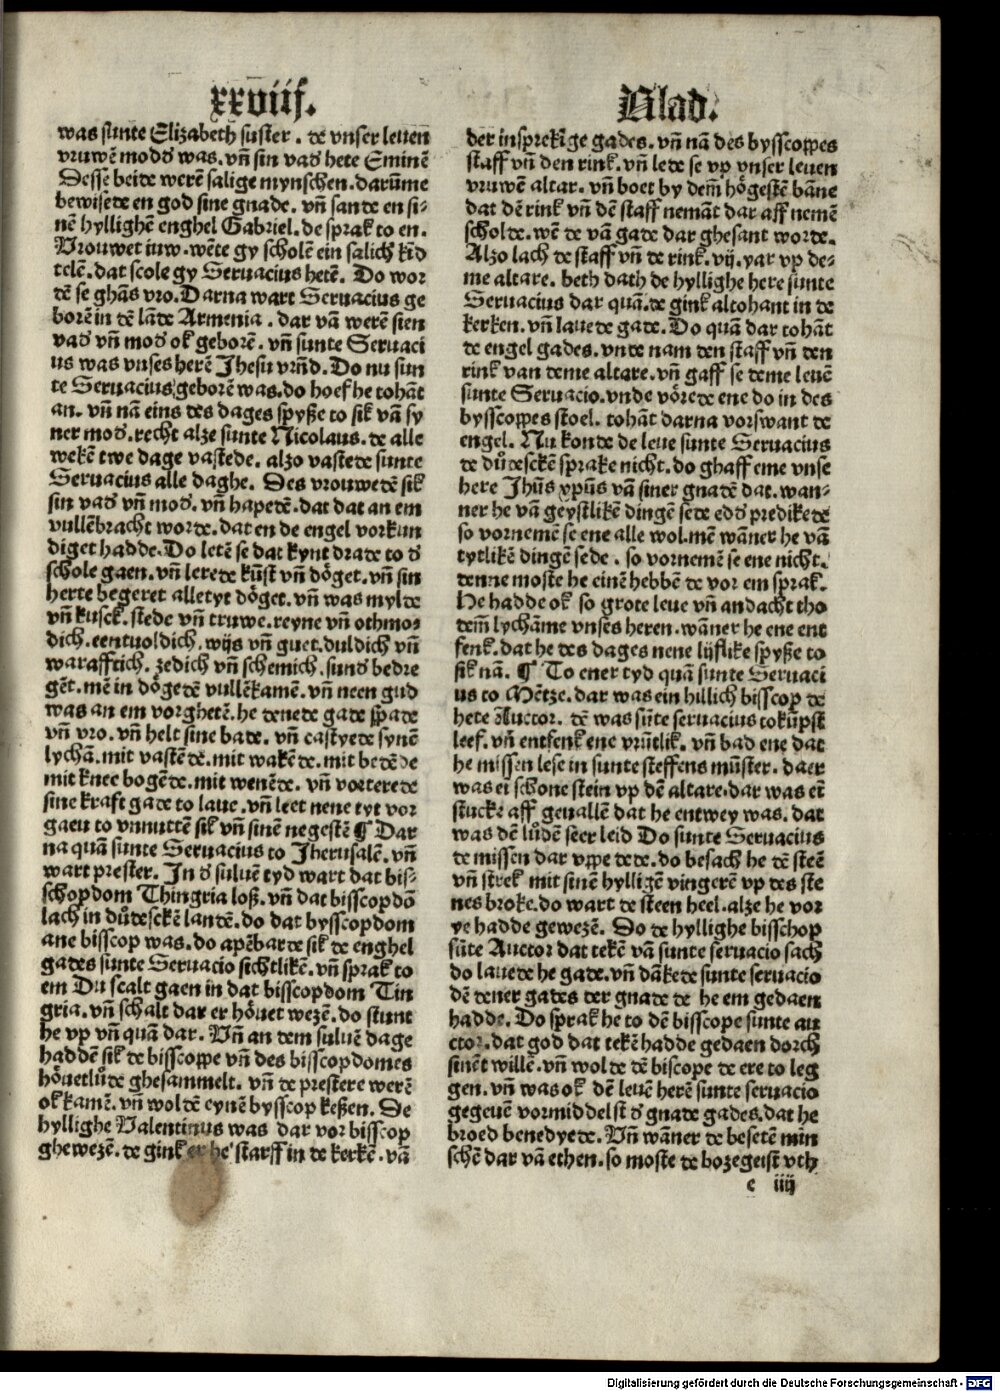 xxviij.
was sunte Elizabeth suster. de vnser leuen
vruwē modꝰ was. vn̄ sin vadꝰ hete Eminē
Desse beide werē salige mynschen. darūme
bewisede en god sine gnade. vn̄ sande en si⸗
nē hyllighē enghel Gabriel. de sprak to en.
Vrouwet iuw. wēte gy scholē ein salich kīd
telē. dat scole gy Seruacius hetē. Do wor
dē se ghās vro. Darna wart Seruacius ge
borē in dē lāde Armenia. dar vā werē sien
vadꝰ vn̄ modꝰ ok geborē. vn̄ sunte Seruaci
us was vnses herē Jhesu vrīnd. Do nu sun
te Seruacius geborē was. do hoef he tohāt
an. vn̄ nā eins des dages spyße to sik vā sy
ner modꝰ. recht alze sunte Nicolaus. de alle
wekē twe dage vastede. alzo vastede sunte
Seruacius alle daghe. Des vrouwedē sik
sin vadꝰ vn̄ modꝰ. vn̄ hapedē. dat dat an em
vullēbracht worde. dat en de engel vorkun
diget hadde. Do letē se dat kynt drade to dꝰ
schole gaen. vn̄ lerede kūst vn̄ döget. vn̄ sin
herte begeret alletyt döget. vn̄ was mylde
vn̄ kusck. stede vn̄ truwe. reyne vn̄ othmo⸗
dich. eentuoldich. wijs vn̄ guet. duldich vn̄
warafftich. zedich vn̄ schemich. sundꝰ bedre
gēt. mē in dögedē vullēkamē. vn̄ neen gud
was an em vorghetē. he denede gade spade
vn̄ vro. vn̄ helt sine bade. vn̄ castyede synē
lychā. mit vastēde. mit wakēde. mit bedēde
mit knee bogēde. mit wenēde. vn̄ voeterede
sine kraft gade to laue. vn̄ leet nene tyt vor
gaen to vnnuttē sik vn̄ sinē negestē ¶ Dar
na quā sunte Seruacius to Jherusalē. vn̄
wart prester. In dꝰ suluē tyd wart dat bis⸗
schopdom Thingria loß. vn̄ dat bisscopdō
lach in dūdesckē landē. do dat bysscopdom
ane bisscop was. do apēbarde sik de enghel
gades sunte Seruacio sichtlikē. vn̄ sprak to
em Du scalt gaen in dat bisscopdom Tin
gria. vn̄ schalt dar er höuet wezē. do stunt
he vp vn̄ quā dar. Vn̄ an dem suluē dage
haddē sik de bisscoppe vn̄ des bisscopdomes
höuetlūde ghesammelt. vn̄ de prestere werē
ok kamē. vn̄ woldē eynē bysscop keßen. De
hyllighe Valentinus was dar vor bisscop
ghewezē. de gink er he starff in de kerkē. vā
Blad.
der insprekīge gades. vn̄ nā des bysscoppes
staff vn̄ den rink. vn̄ lede se vp vnser leuen
vruwē altar. vn̄ boet by dem̄ högestē bāne
dat dē rink vn̄ dē staff nemāt dar aff nemē
scholde. wē de vā gade dar ghesant worde.
Alzo lach de staff vn̄ de rink. vij. yar vp de⸗
me altare. beth dath de hyllighe here sunte
Seruacius dar quā. de gink altohant in de
kerken. vn̄ lauede gade. Do quā dar tohāt
de engel gades. vnde nam den staff vn̄ den
rink van deme altare. vn̄ gaff se deme leuē
sunte Seruacio. vnde vörede ene do in des
bysscoppes stoel. tohāt darna vorswant de
engel. Nu konde de leue sunte Seruacius
de dūdesckē sprake nicht. do ghaff eme vnse
here Jhūs xpūs vā siner gnadē dat. wan⸗
ner he vā geystlikē dingē sede edꝰ predikede
so vornemē se ene alle wol. mē wāner he vā
tytlikē dingē sede. so vornemē se ene nicht.
denne moste he einē hebbē de vor em sprak.
He hadde ok so grote leue vn̄ andacht tho
dem̄ lychāme vnses heren. wāner he ene ent
fenk. dat he des dages nene lijflike spyße to
sik nā. ¶ To ener tyd quā sunte Seruaci
us to Mētze. dar was ein hillich bisscop de
hete Auctor. dē was sūte seruacius tokūpst
leef. vn̄ entfenk ene vrūtlik. vn̄ bad ene dat
he missen lese in sunte steffens mūster. daer
was ei schone stein vp dē altare. dar was eī
stucke aff geuallē dat he entwey was. dat
was dē lūdē seer leid Do sunte Seruacius
de missen dar vppe dede. do besach he dē steē
vn̄ strek mit sinē hylligē vingerē vp des ste
nes broke. do wart de steen heel. alze he vor
ye hadde gewezē. Do de hyllighe bisschop
sūte Auctor dat tekē vā sunte seruacio sach
do lauede he gade. vn̄ dākede sunte seruacio
dē dener gades der gnade de he em gedaen
hadde. Do sprak he to dē bisscope sunte au
ctor. dat god dat tekē hadde gedaen dorch
sinēt willē. vn̄ wolde dē biscope de ere to leg
gen. vn̄ was ok dē leuē herē sunte seruacio
gegeuē vormiddelst dꝰ gnade gades. dat he
broed benedyede. Vn̄ wāner de besetē min
schē dar vā ethen. so moste de bozegeist vth
c iiij
Digitalisierung gefördert durch die Deutsche Forschungsgemeinschaft - DFG